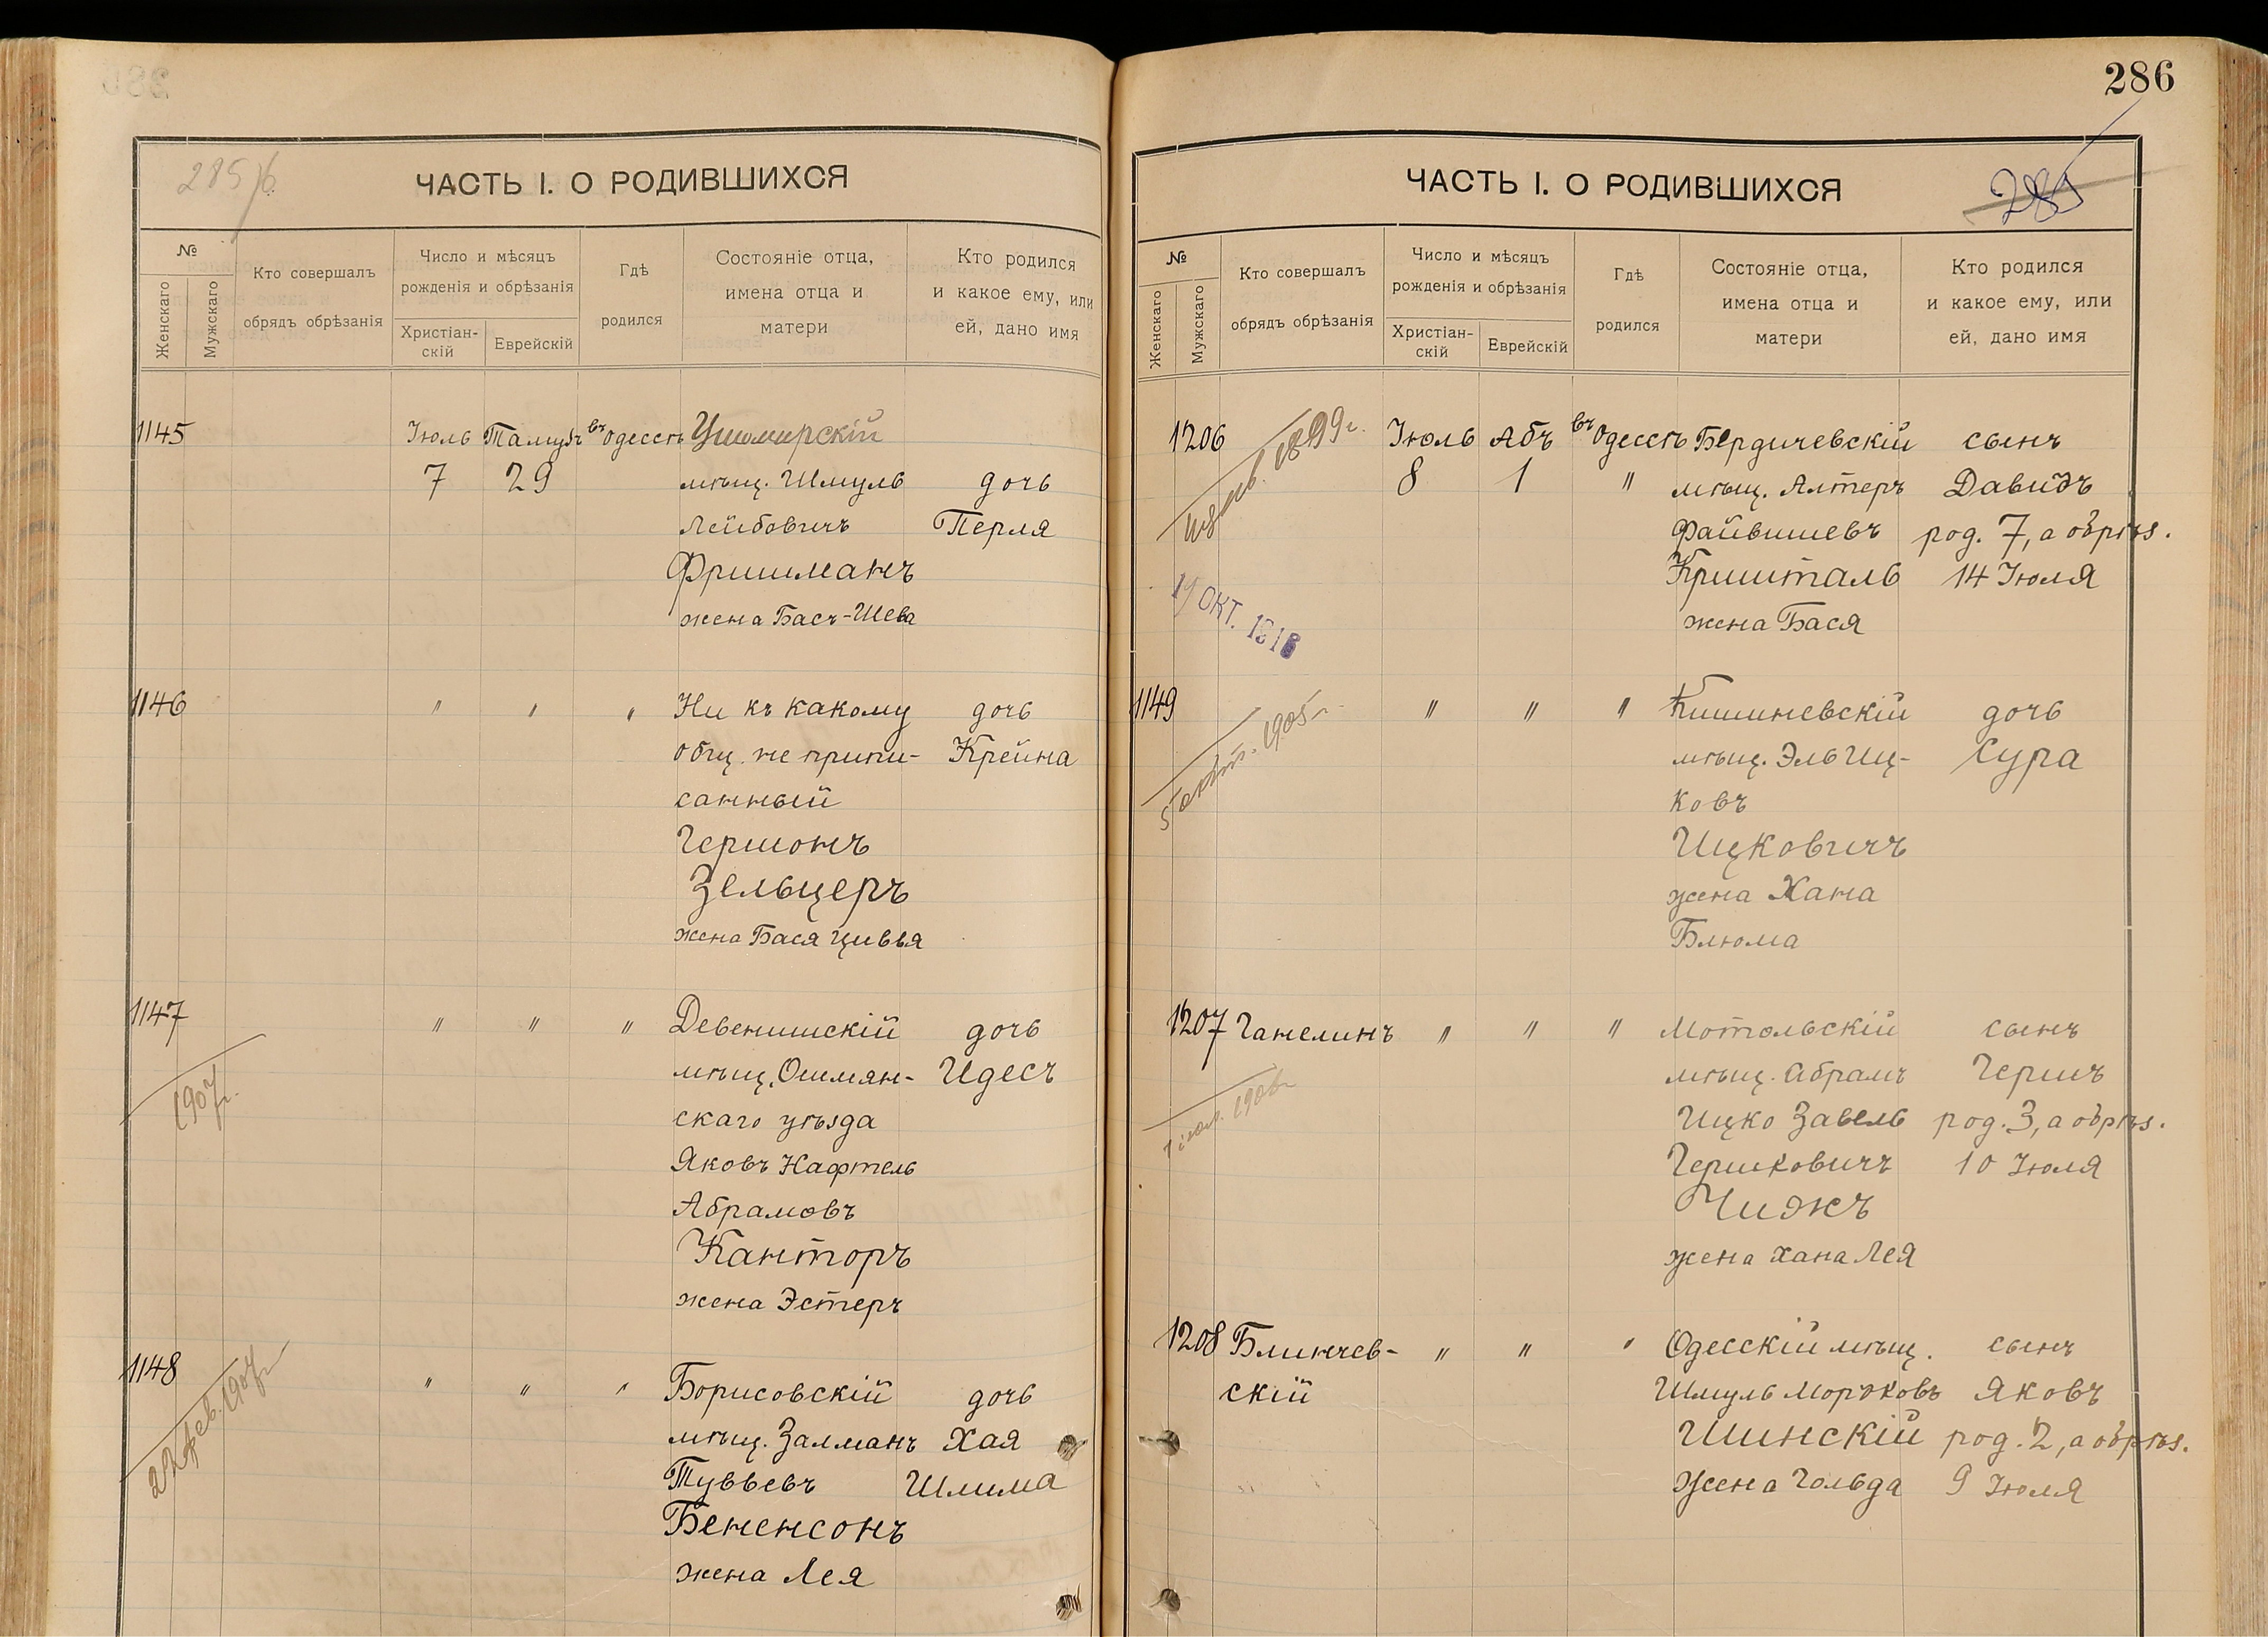 286
285/б
ЧАСТЬ I. О РОДИВШИХСЯ
№
Женскаго
Мужскаго
Кто совершалъ
обрядъ обрѣзанія
Число и мѣсяцъ
рожденія и обрѣзанія
Христіан-
скій
Еврейскій
Гдѣ
родился
Состояніе отца,
имена отца и
матери
Кто родился
и какое ему, или
ей, дано имя
1145 Іюль Тамузъ въ Одессѣ Ушомирскій
7 29 мѣщ. Шмуль дочь
Лейбовичъ Перля
Фришманъ
жена Бася-Шева
1146 " " " Ни къ какому дочь
общ. не припи- Крейна
санный
Гершонъ
Зельцеръ
жена Бася Цивья
1147 " " " Девенишскій дочь
мѣщ. Ошмян- Идесъ
скаго уѣзда
1907г.
Яковъ Нафтель
Абрамовъ
Канторъ
жена Эстеръ
1148 " " " Борисовскій дочь
мѣщ. Залманъ Хая
Туввьевъ Шлима
фев. 1907г
Бененсонъ
жена Лея
ЧАСТЬ I. О РОДИВШИХСЯ
285
№
Женскаго
Мужскаго
Кто совершалъ
обрядъ обрѣзанія
Число и мѣсяцъ
рожденія и обрѣзанія
Христіан-
скій
Еврейскій
Гдѣ
родился
Состояніе отца,
имена отца и
матери
Кто родился
и какое ему, или
ей, дано имя
1206 Іюль Абъ въ Одессѣ Бердичевскій сынъ
8 1 " мѣщ. Алтеръ Давидъ
Файвишевъ род. 7, а обрѣз.
Кришталь 14 Іюля
жена Бася
1899г.
19 ОКТ. 1916
1149 " " " Кишиневскій дочь
мѣщ. Эль Иц- Сура
ковъ
Ицковичъ
жена Хана
Блюма
5 1905 г.
1207 Ганелинъ " " " Мотольскій сынъ
мѣщ. Абрамъ Гершъ
Ицко Завель род. 3, а обрѣз.
Гершковичъ 10 Іюля
Чижъ
жена Хана Лея
1208 Блинчев- " " " Одесскій мѣщ. сынъ
скій Шмуль Мордковъ Яковъ
Шинскій род. 2, а обрѣз.
жена Гольда 9 Іюля